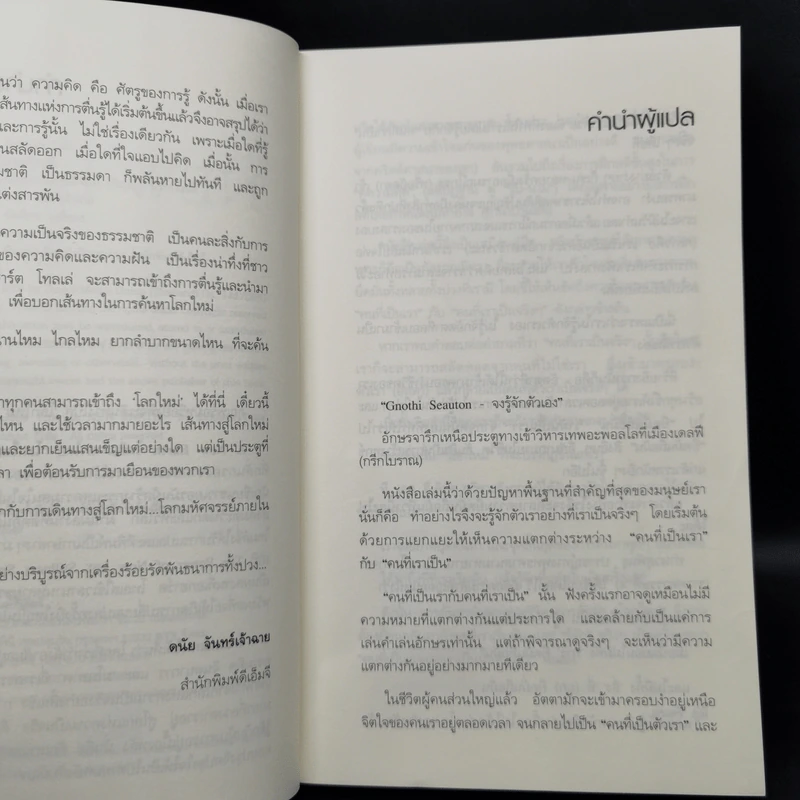 นว่า ความคิด คือ ศัตรูของการรู้ ดังนั้น เมื่อเรา
เส้นทางแห่งการตื่นรู้ได้เริ่มต้นขึ้นแล้วจึงอาจสรุปได้ว่า
และการรู้นั้น ไม่ใช่เรื่องเดียวกัน เพราะเมื่อใดที่รู้
นสลัดออก เมื่อใดที่ใจแอบไปคิด เมื่อนั้น การ
มชาติ เป็นธรรมดา ก็พลันหายไปทันที และถูก
แต่งสารพัน
ความเป็นจริงของธรรมชาติ เป็นคนละสิ่งกับการ
ของความคิดและความฝัน เป็นเรื่องน่าทึ่งที่ชาว
าร์ต โทลเล่ จะสามารถเข้าถึงการตื่นรู้และนำมา
เพื่อบอกเส้นทางในการค้นหาโลกใหม่
านไหม ไกลไหม ยากลำบากขนาดไหน ที่จะค้น
าทุกคนสามารถเข้าถึง 'โลกใหม่' ได้ที่นี่ เดี๋ยวนี้
ไหน และใช้เวลามากมายอะไร เส้นทางสู่โลกใหม่
และยากเย็นแสนเข็ญแต่อย่างใด แต่เป็นประตูที่
ลา เพื่อต้อนรับการมาเยือนของพวกเรา
กกับการเดินทางสู่โลกใหม่...โลกมหัศจรรย์ภายใน
ย่างบริบูรณ์จากเครื่องร้อยรัดพันธนาการทั้งปวง...
ดนัย จันทร์เจ้าฉาย
สำนักพิมพ์ดีเอ็มจี
คำนำผู้แปล
"Gnothi Seauton - จงรู้จักตัวเอง"
อักษรจารึกเหนือประตูทางเข้าวิหารเทพอะพอลโลที่เมืองเดลฟี
(กรีกโบราณ)
หนังสือเล่มนี้ว่าด้วยปัญหาพื้นฐานที่สำคัญที่สุดของมนุษย์เรา
นั่นก็คือ ทำอย่างไรจึงจะรู้จักตัวเราอย่างที่เราเป็นจริงๆ โดยเริ่มต้น
ด้วยการแยกแยะให้เห็นความแตกต่างระหว่าง "คนที่เป็นเรา"
กับ "คนที่เราเป็น"
"คนที่เป็นเรากับคนที่เราเป็น" นั้น ฟังครั้งแรกอาจดูเหมือนไม่มี
ความหมายที่แตกต่างกันแต่ประการใด และคล้ายกับเป็นแค่การ
เล่นคำเล่นอักษรเท่านั้น แต่ถ้าพิจารณาดูจริงๆ จะเห็นว่ามีความ
แตกต่างกันอยู่อย่างมากมายทีเดียว
ในชีวิตผู้คนส่วนใหญ่แล้ว อัตตามักจะเข้ามาครอบงำอยู่เหนือ
จิตใจของคนเราอยู่ตลอดเวลา จนกลายไปเป็น "คนที่เป็นตัวเรา" และ